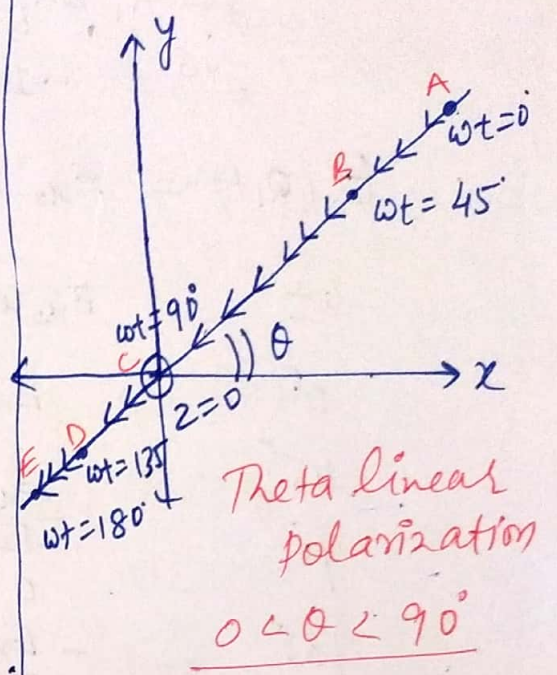 y
A
ωt=0°
B
ωt = 45°
ωt=90°
θ
C
x
z=0
D
E
ωt=135
ωt=180°
Theta linear
polarization
0 < θ < 90°